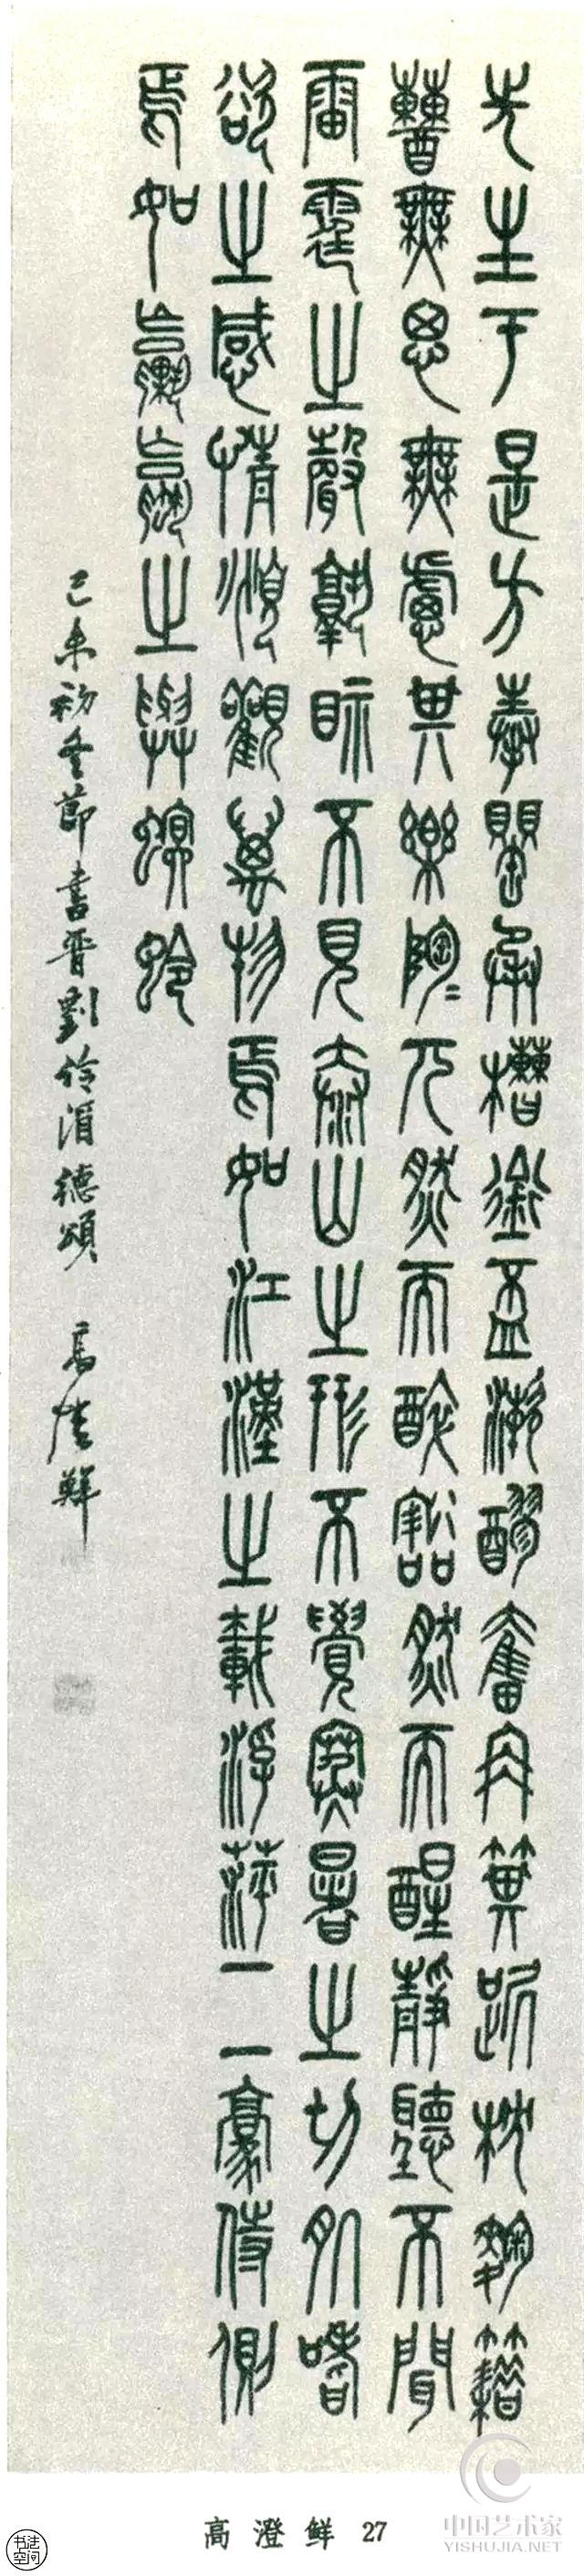 先生于是方奉罌承槽銜盃漱醪奮冉箕踞枕麴籍
糟無思無慮其樂陶〻兀然而醉豁然而醒靜聽不聞
雷霆之聲孰眎不見泰山之形不覺寒暑之切肌嗜
欲之感情頫觀萬物焉如江漢之載浮萍二豪侍側
焉如蜾蠃之與螟蛉
己未初冬節書晉劉伶酒德頌 高澄鮮
高澄鲜 27
书法空间
中国艺术家
YISHUJIA.NET